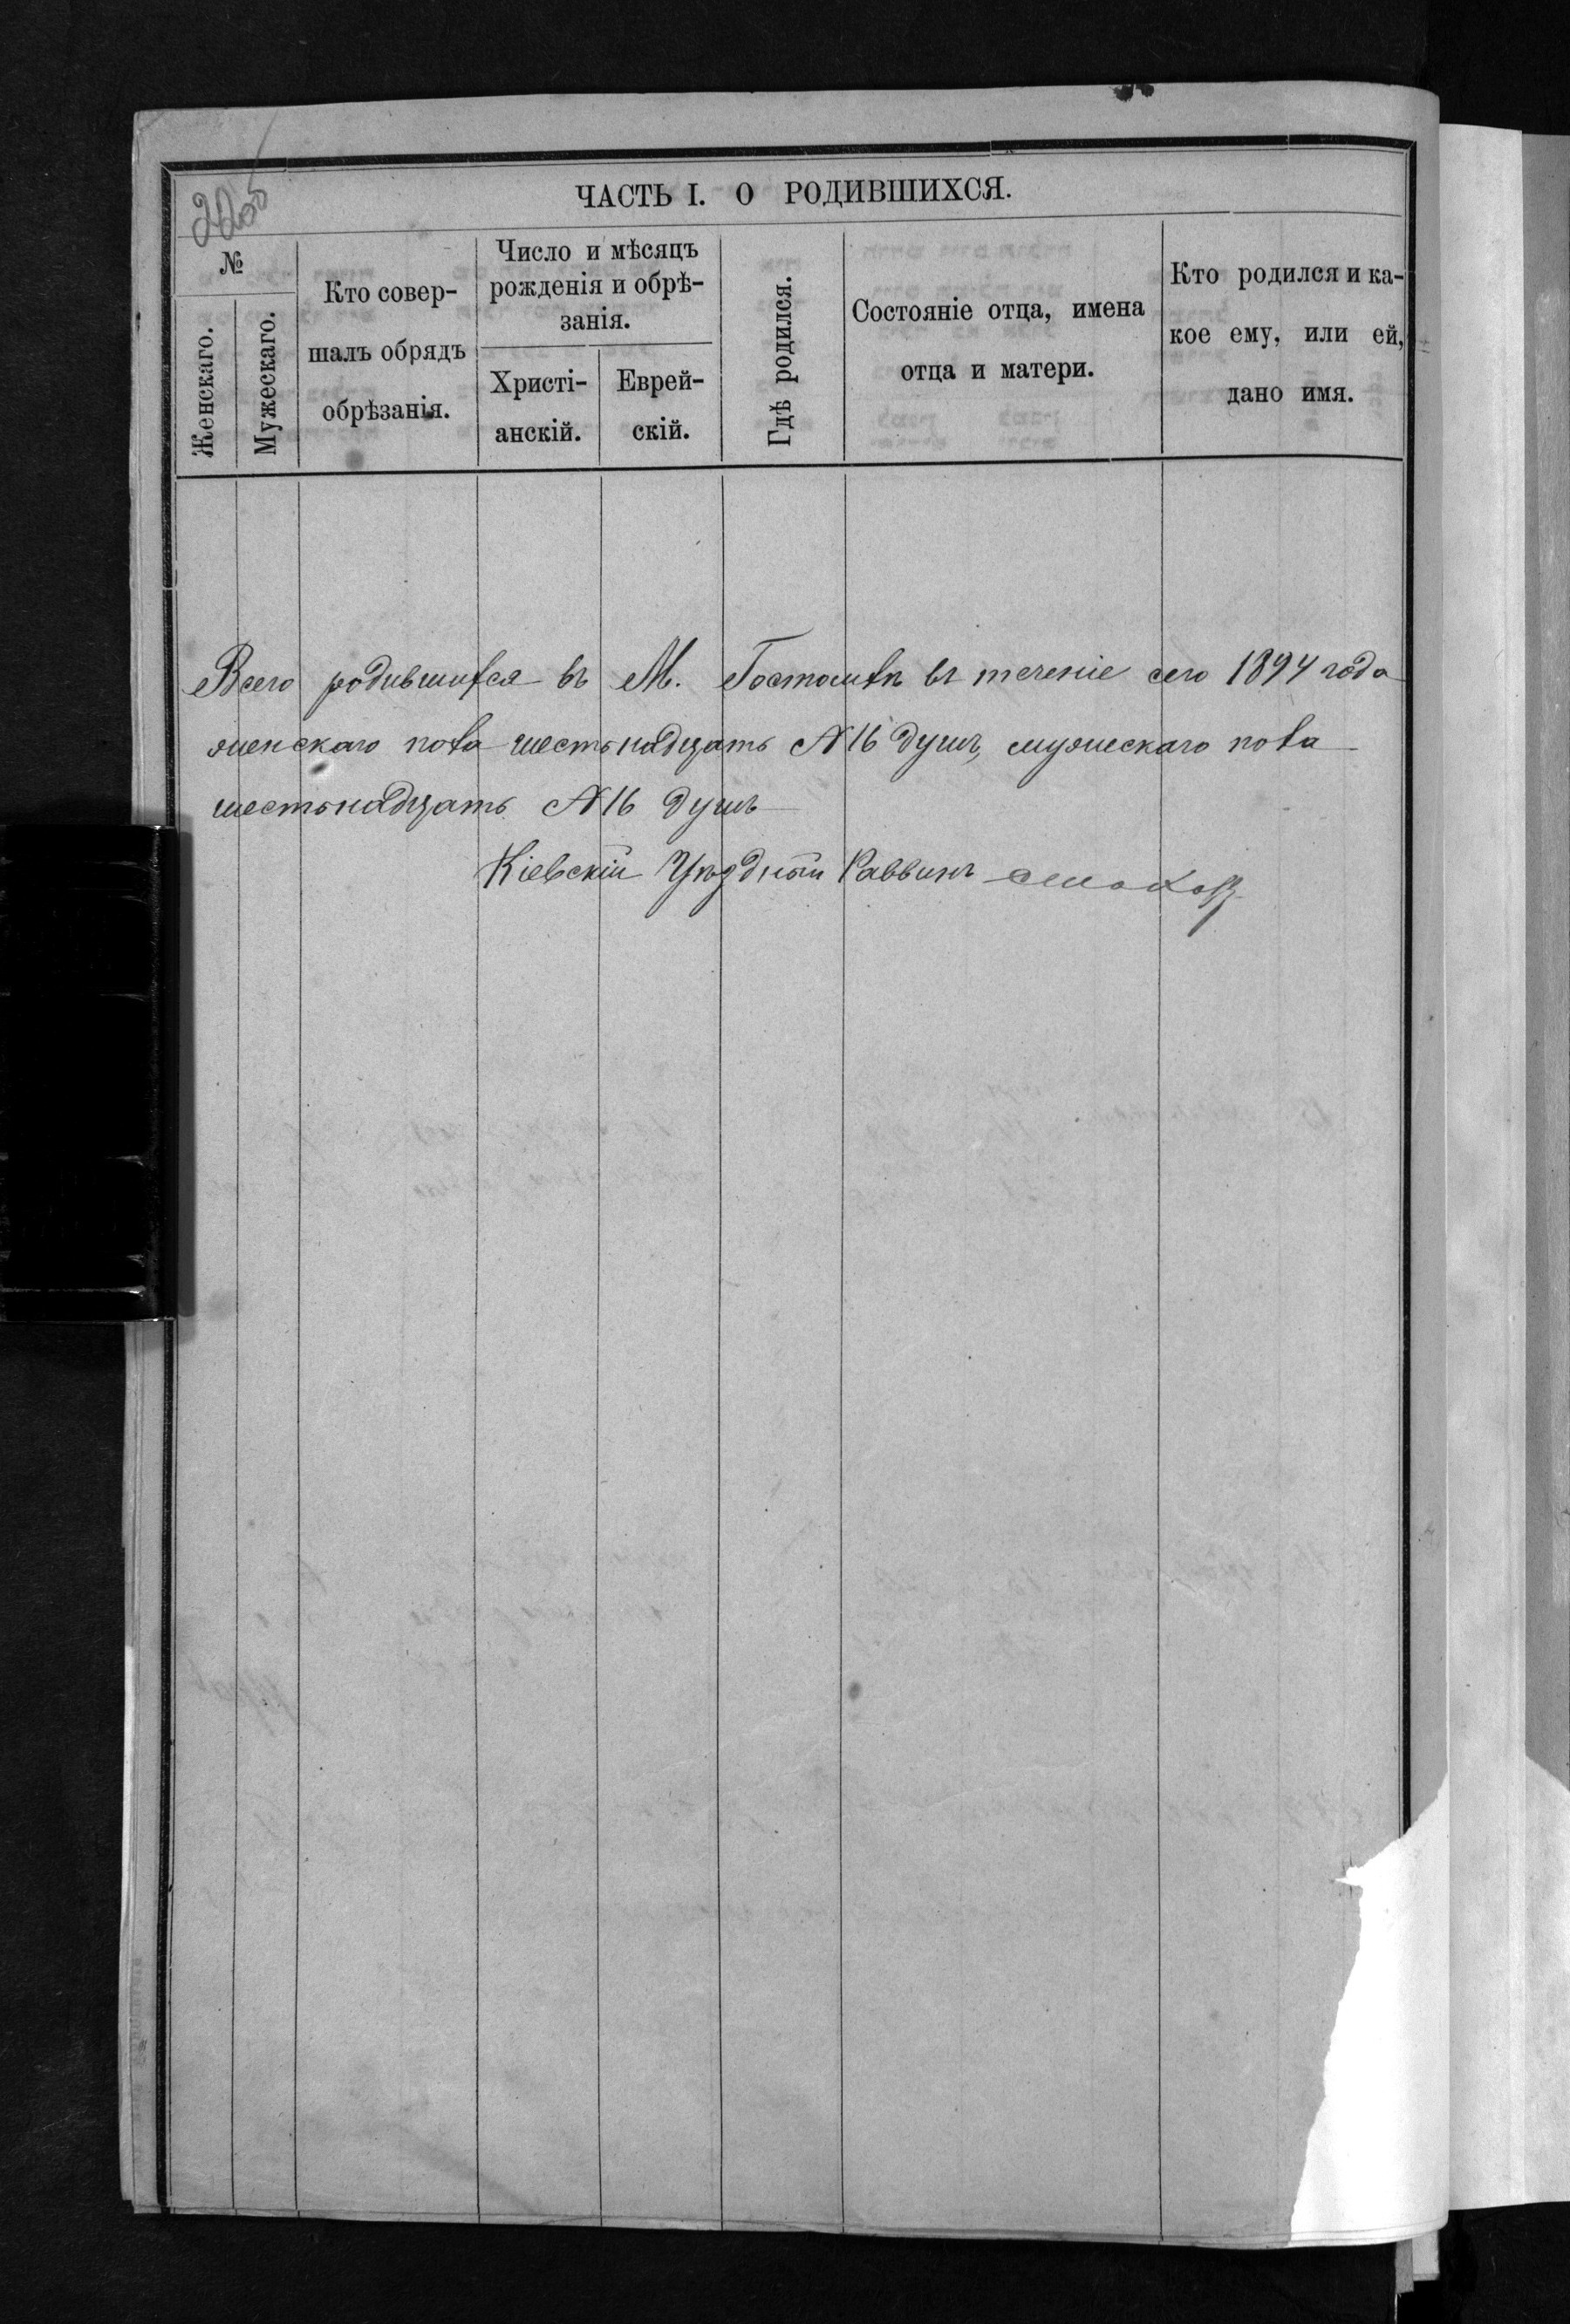 ЧАСТЬ I. О РОДИВШИХСЯ.
№
Женскаго.
Мужескаго.
Кто совер-
шалъ обрядъ
обрѣзанія.
Число и мѣсяцъ
рожденія и обрѣ-
занія.
Христі-
анскій.
Еврей-
скій.
Гдѣ родился.
Состояніе отца, имена
отца и матери.
Кто родился и ка-
кое ему, или ей,
дано имя.
Всего родившихся въ М. Гостомлѣ въ теченіе сего 1894 года
женскаго пола шестьнадцать № 16 душъ, мужескаго пола
шестьнадцать № 16 душъ
Кіевскій Уѣздный Раввинъ